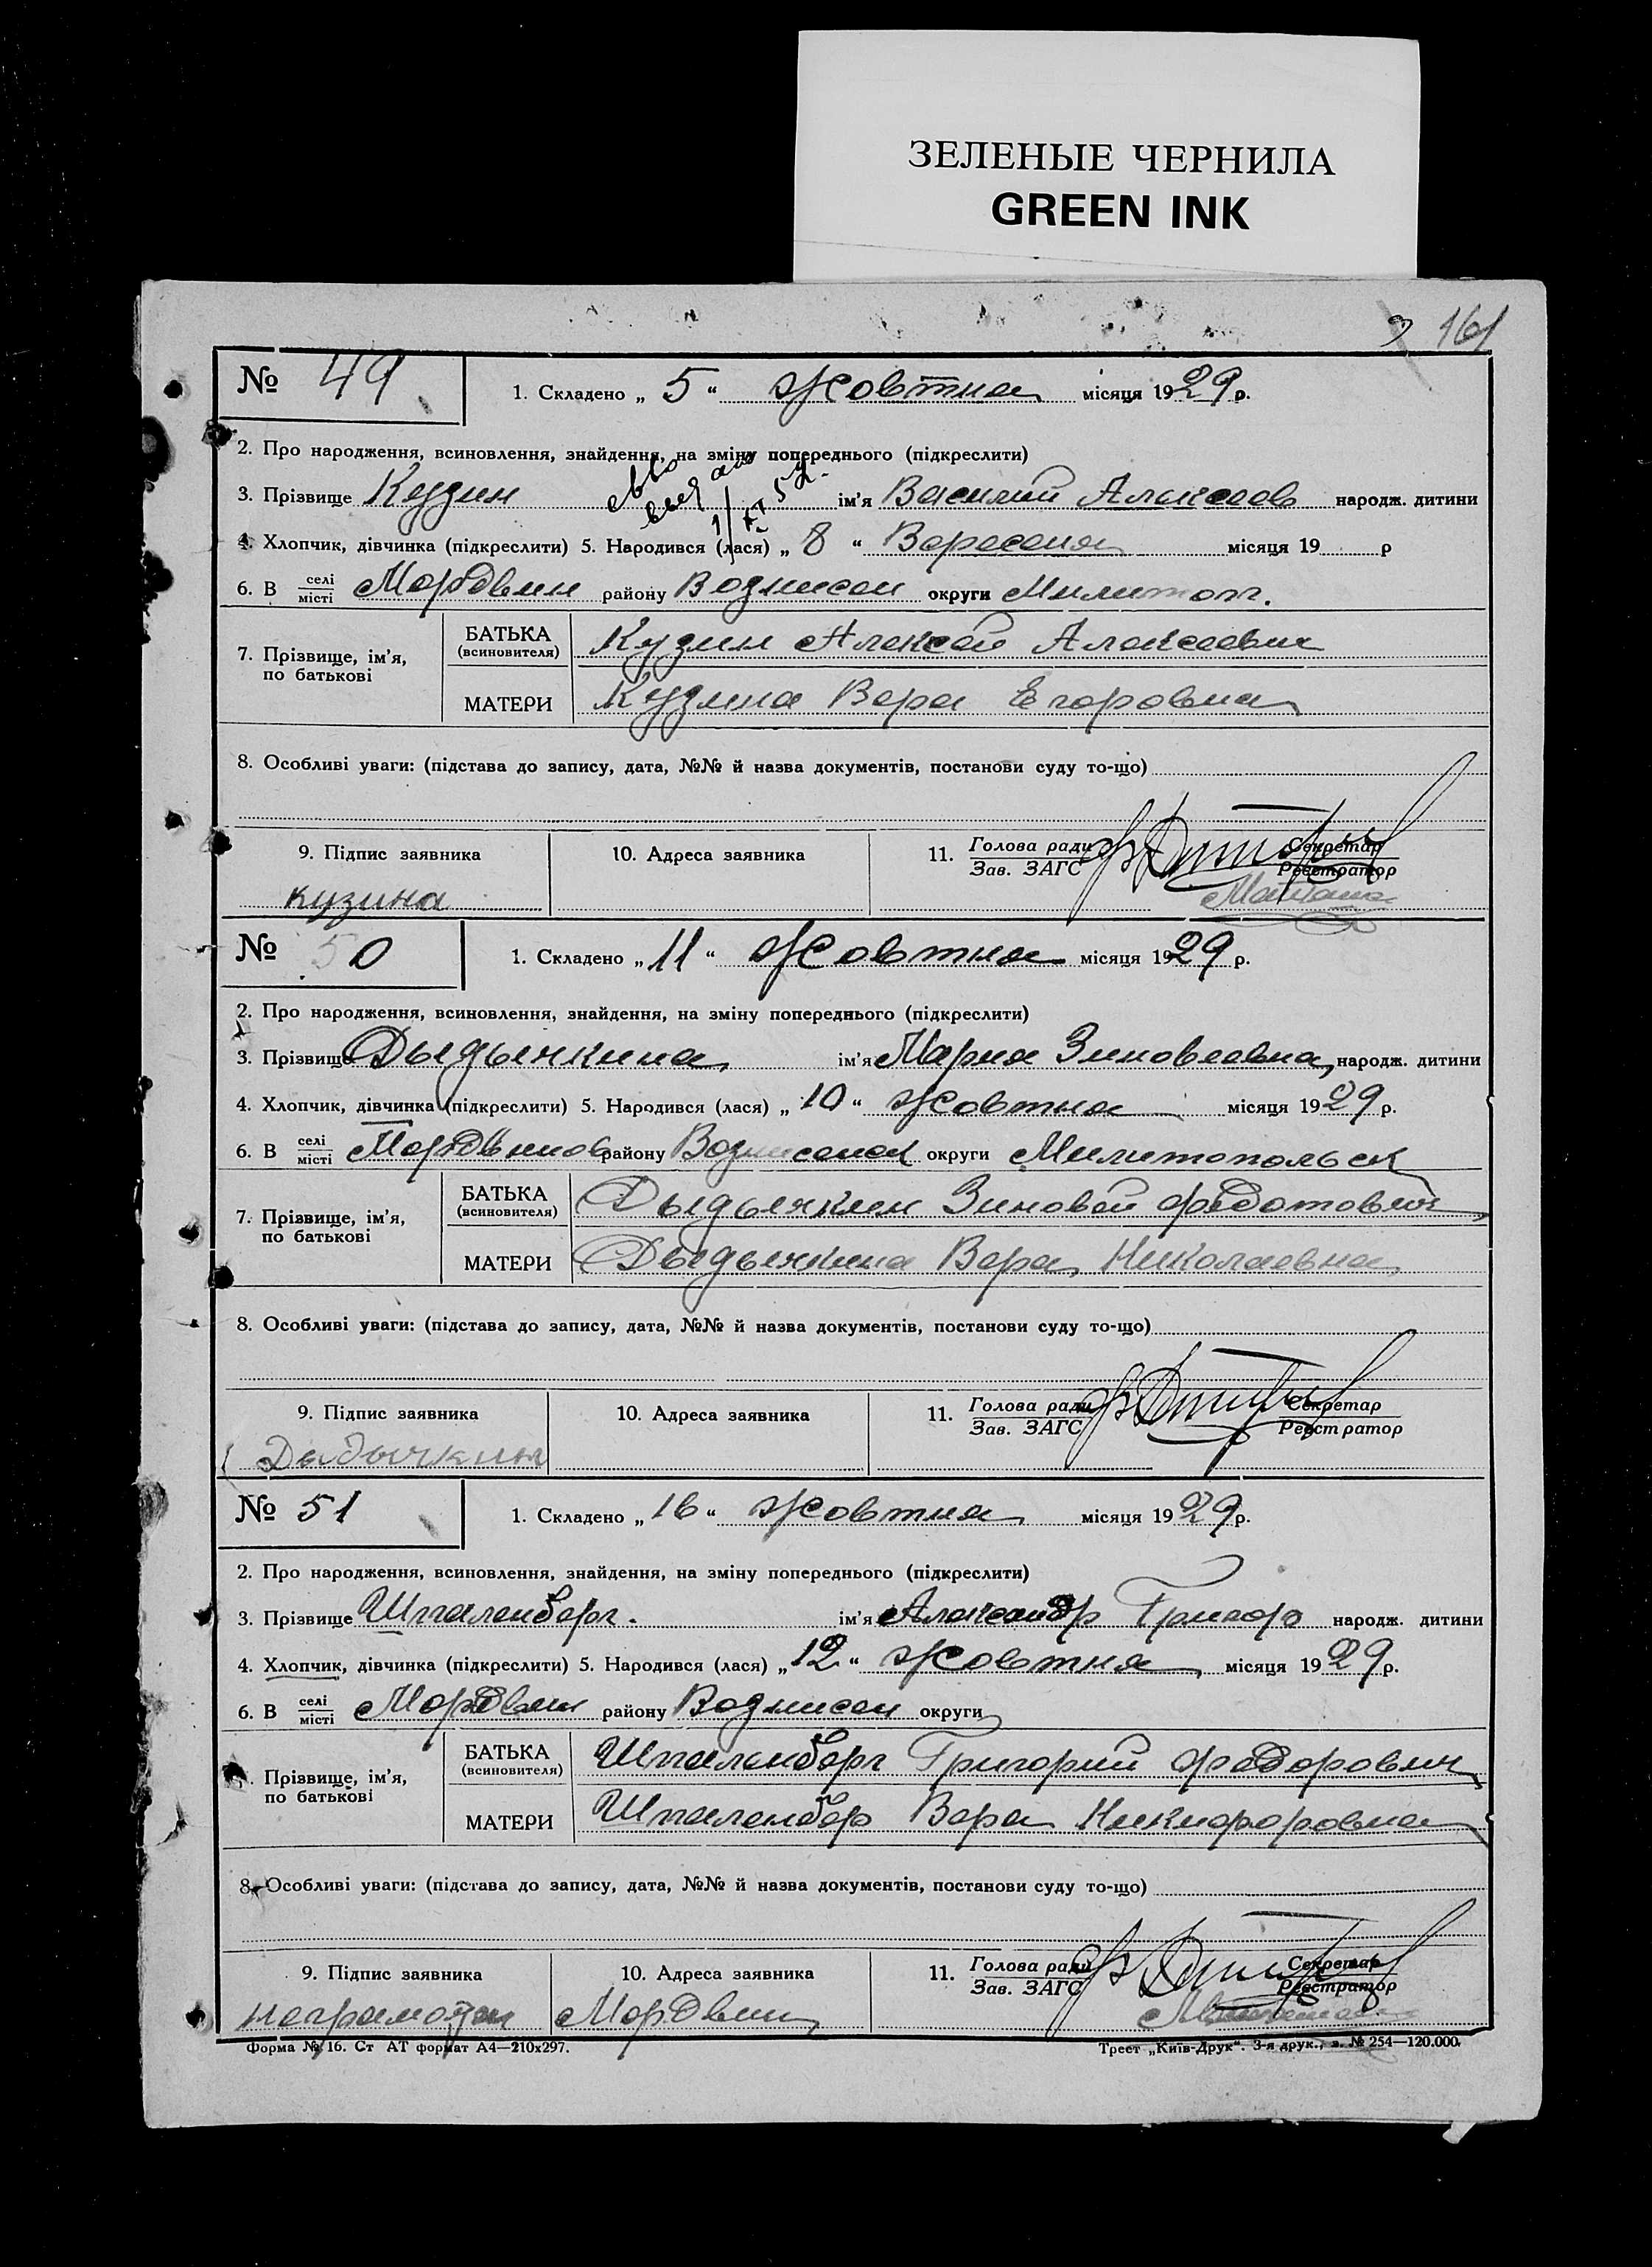 ЗЕЛЕНЫЕ ЧЕРНИЛА
GREEN INK
161
№ 49 1. Складено „ 5 “ Жовтня місяця 1929 р.
2. Про народження, всиновлення, знайдення, на зміну попереднього (підкреслити)
3. Прізвище Кузин ім'я Василий Алексеев народж. дитини
4. Хлопчик, дівчинка (підкреслити) 5. Народився (лася) „ 8 “ Вересеня місяця 19 р
6. В селі/місті Мордвин району Вознисен округи Милитоп.
7. Прізвище, ім'я, по батькові
БАТЬКА (всиновителя) Кузин Алексей Алексеевич
МАТЕРИ Кузина Вера Егоровна
8. Особливі уваги: (підстава до запису, дата, №№ й назва документів, постанови суду то-що)
9. Підпис заявника 10. Адреса заявника 11. Голова ради/Зав. ЗАГС Секретар/Реєстратор
кузина
№ 50 1. Складено „ 11 “ Жовтня місяця 1929 р.
2. Про народження, всиновлення, знайдення, на зміну попереднього (підкреслити)
3. Прізвище Дыдычкина ім'я Мария Зиновеевна народж. дитини
4. Хлопчик, дівчинка (підкреслити) 5. Народився (лася) „ 10 “ Жовтня місяця 1929 р.
6. В селі/місті Мордвинов району Вознисенск округи Милитопольск
7. Прізвище, ім'я, по батькові
БАТЬКА (всиновителя) Дыдычкин Зиновей Федотович
МАТЕРИ Дыдычкина Вера Николаевна
8. Особливі уваги: (підстава до запису, дата, №№ й назва документів, постанови суду то-що)
9. Підпис заявника 10. Адреса заявника 11. Голова ради/Зав. ЗАГС Секретар/Реєстратор
№ 51 1. Складено „ 16 “ Жовтня місяця 1929 р.
2. Про народження, всиновлення, знайдення, на зміну попереднього (підкреслити)
3. Прізвище Шпаленберг. ім'я Александр Григор народж. дитини
4. Хлопчик, дівчинка (підкреслити) 5. Народився (лася) „ 12 “ Жовтня місяця 1929 р.
6. В селі/місті Мордвин району Вознисен округи
Прізвище, ім'я, по батькові
БАТЬКА (всиновителя) Шпаленберг Григорий Федорович
МАТЕРИ Шпаленбер Вера Никифоровна
8. Особливі уваги: (підстава до запису, дата, №№ й назва документів, постанови суду то-що)
9. Підпис заявника 10. Адреса заявника 11. Голова ради/Зав. ЗАГС Секретар/Реєстратор
Мордвин
Форма № 16. Ст АТ формат А4—210х297. Трест „Київ-Друк“. 3-я друк., з. № 254—120.000.